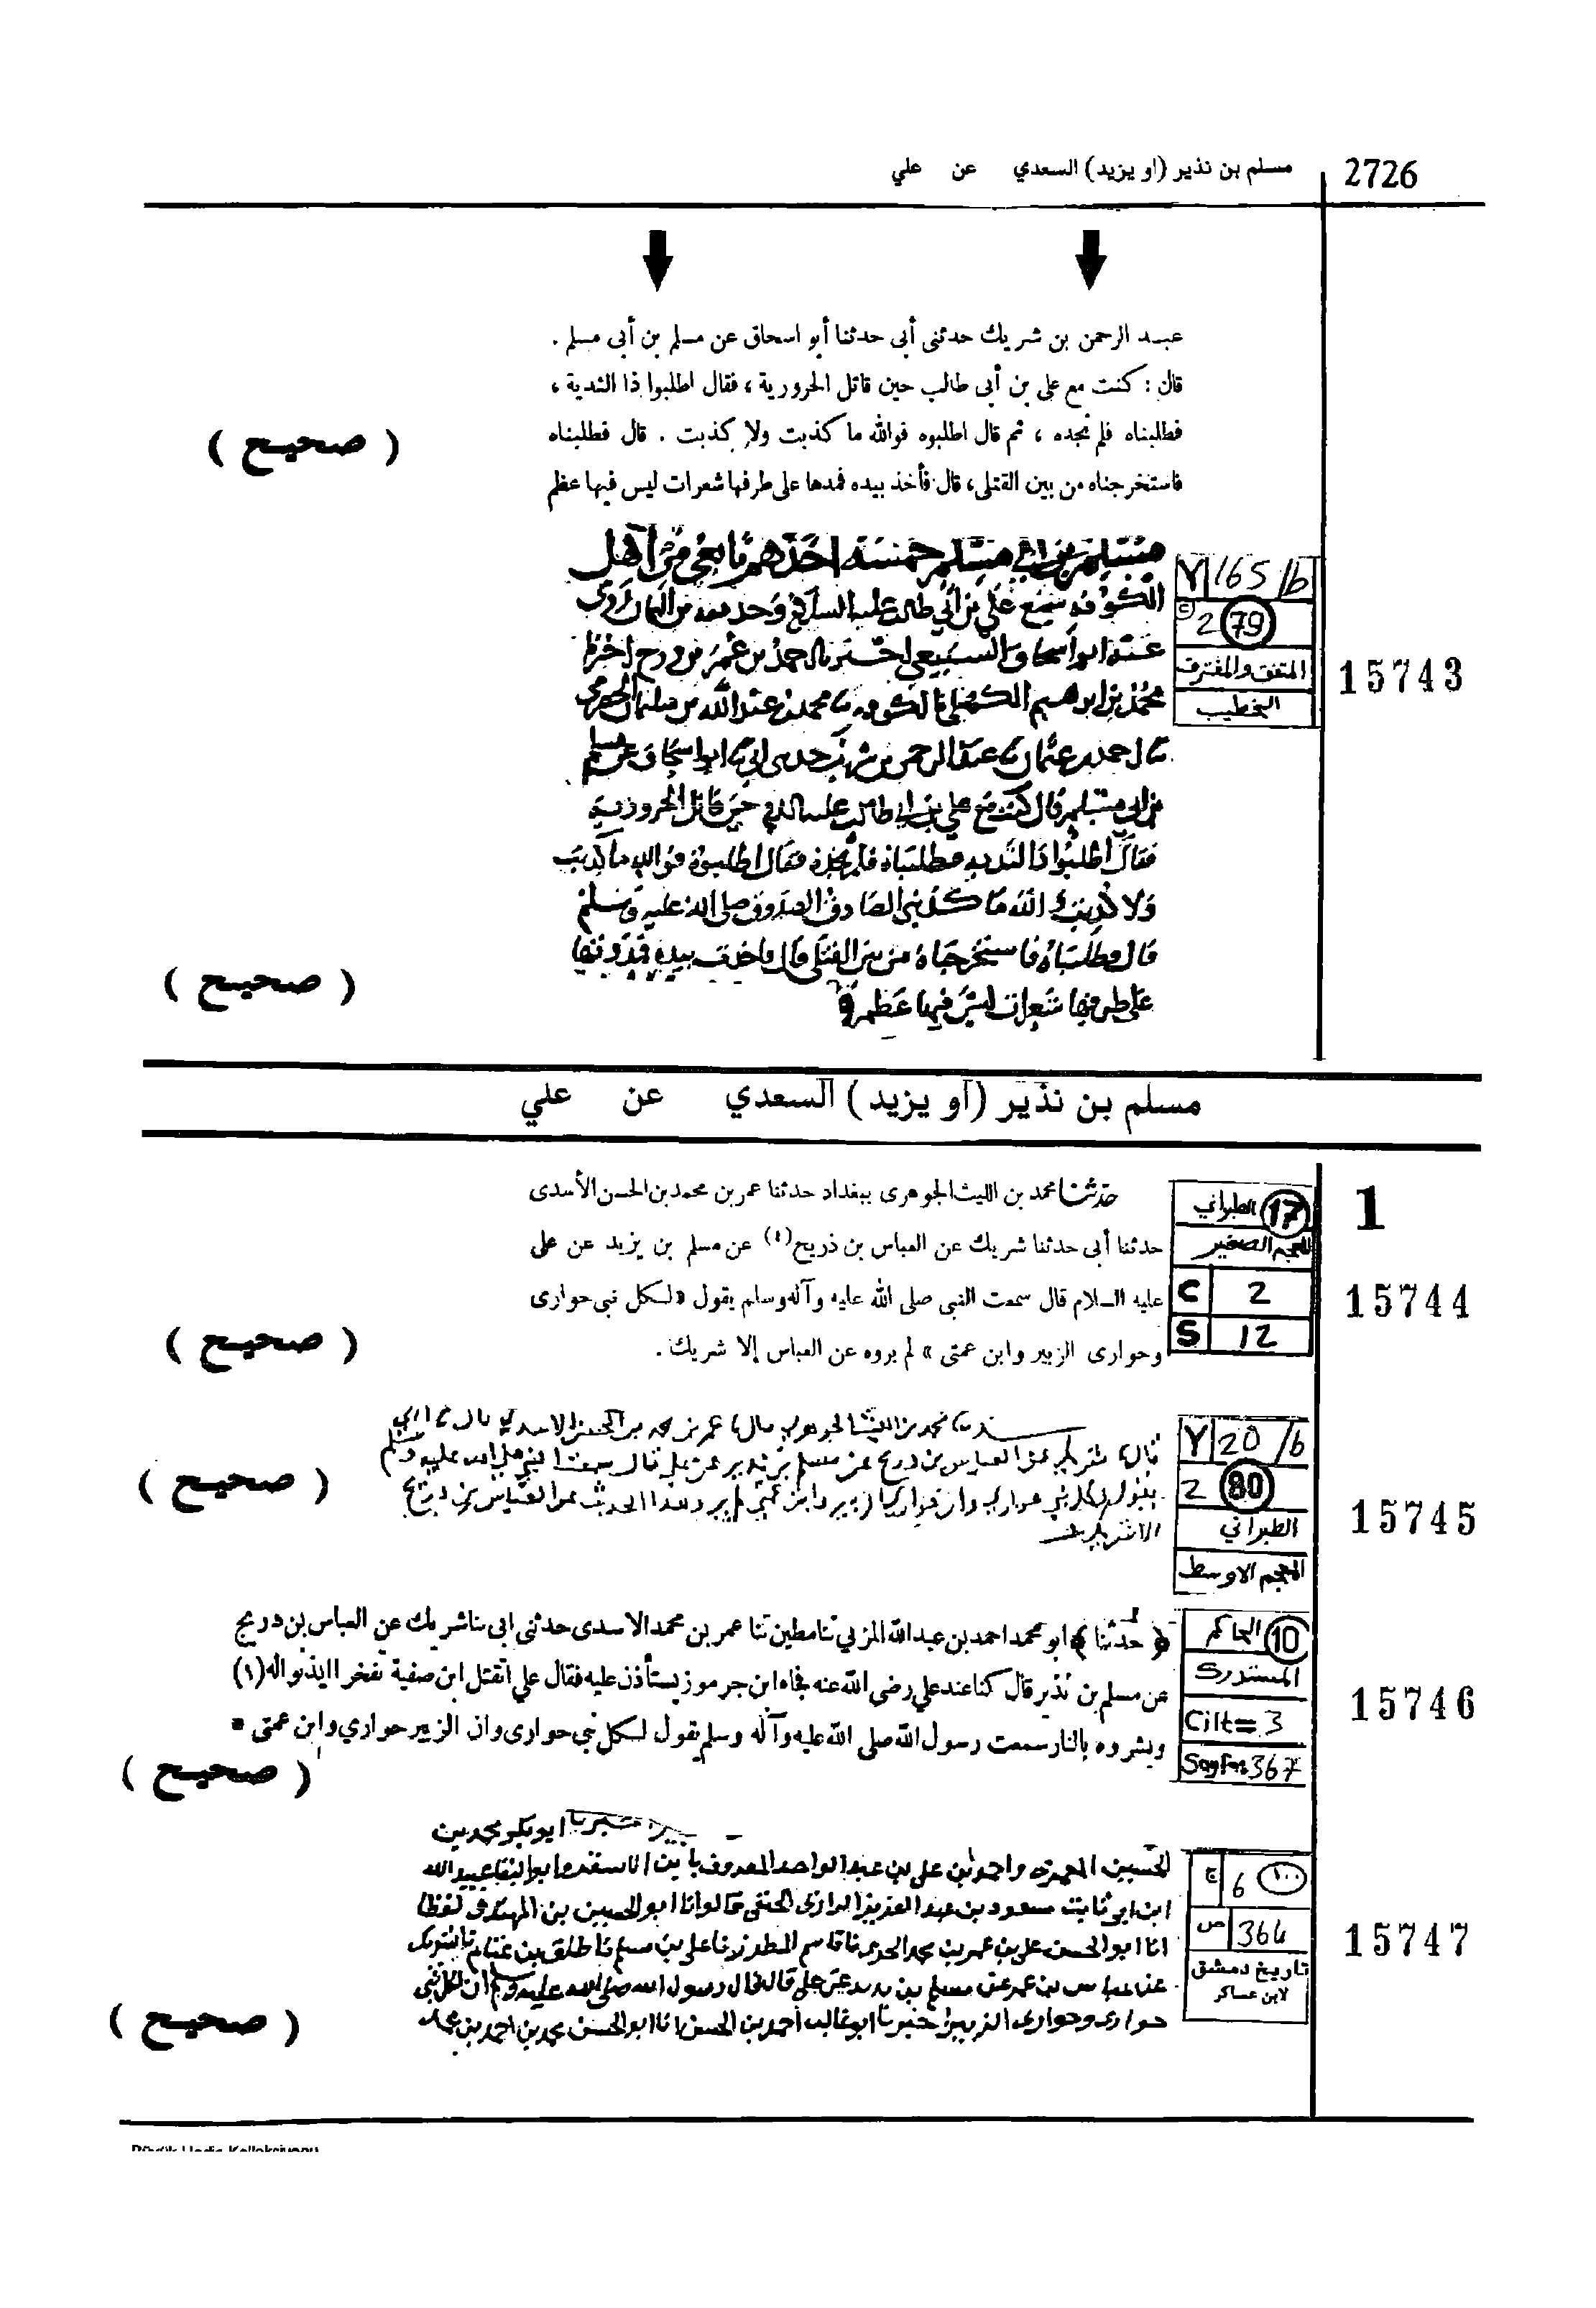 2726
مسلم بن نذير (او يزيد) السعدي عن علي
عبد الرحمن بن شريك حدثنى أبى حدثنا أبو اسحاق عن مسلم بن أبى مسلم .
قال : كنت مع على بن أبى طالب حين قاتل الحرورية ، فقال اطلبوا ذا الثدية ،
فطلبناه فلم نجده ، ثم قال اطلبوه فوالله ما كذبت ولا كذبت . قال فطلبناه
( صحيح )
فاستخرجناه من بين القتلى، قال فأخذ بيده فمدها على طرفها شعرات ليس فيها عظم
Y 165/b
2 79
المتفق والمفترف
الخطيب
15743
مسلم بن ابي مسلم خمسة احدهم تابعي من اهل
الكوفة سمع علي بن أبي طالب عليه السلام وحذيفة بن اليمان روى
عنه ابو اسحاق السبيعي احمد بن عمر بن روح
محمد بن ابراهيم بالكوفة محمد بن عبد الله بن سليمان الحضرمي
احمد بن عثمان عبد الرحمن بن شريك حدثني ابي ابو اسحاق عن مسلم
بن ابي مسلم قال كنت مع علي بن ابي طالب حين قاتل الحرورية
فقال اطلبوا ذا الثدية فطلبناه فلم نجده فقال اطلبوه فوالله ما كذبت
ولا كذبت الصادق المصدوق صلى الله عليه وسلم
قال فطلبناه فاستخرجناه من بين القتلى قال فاخذت بيده
( صحيح )
على طرفها شعرات ليس فيها عظم
مسلم بن نذير (او يزيد) السعدي عن علي
1
17 الطبراني
المعجم الصغير
C 2
S 12
15744
حدثنا محمد بن الليث الجوهرى ببغداد حدثنا عمر بن محمد بن الحسن الأسدى
حدثنا أبى حدثنا شريك عن العباس بن ذريح(١) عن مسلم بن يزيد عن على
عليه السلام قال سمعت النبى صلى الله عليه وآله وسلم يقول «لكل نبى حوارى
وحوارى الزبير وابن عمتى » لم يروه عن العباس إلا شريك .
( صحيح )
Y 20/b
2 80
الطبراني
المعجم الاوسط
15745
محمد بن الليث الجوهري قال عمر بن محمد بن الحسن الاسدي قال ابي
قال شريك عن العباس بن ذريح عن مسلم بن نذير عن علي قال سمعت النبي صلى الله عليه وسلم
يقول لكل نبي حواري وان حواري الزبير وابن عمتي لم يرو هذا الحديث عن العباس بن ذريح
الا شريك
( صحيح )
10 الحاكم
المستدرك
Cilt= 3
Sayfa: 367
15746
﴿ حدثنا ﴾ ابو محمد احمد بن عبد الله المزني ثنا مطين ثنا عمر بن محمد الاسدى حدثنى ابى ثنا شريك عن العباس بن ذريح
عن مسلم بن نذير قال كنا عند علي رضى الله عنه فجاء ابن جرموز يستأذن عليه فقال علي اتقتل ابن صفية تفخرا ايذنوا له(١)
وبشروه بالنار سمعت رسول الله صلى الله عليه وآله وسلم يقول لكل نبي حوارى وان الزبير حواري وابن عمتى *
( صحيح )
ج 6 ١٠٠
ص 364
تاريخ دمشق
لابن عساكر
15747
ابو بكر محمد بن
الحسين واحمد بن علي بن عبد الواحد المعروف
ابن ابي ثابت مسعود بن عبد العزيز الرازى الحنفى قالوا انا ابو الحسين بن المهتدى لفظا
انا ابو الحسن علي بن عمر بن محمد الحربي نا قاسم المطرز نا علي بن مسلم نا طلق بن غنام نا شريك
عن مسلم بن يزيد عن علي قال قال رسول الله صلى الله عليه وسلم ان لكل نبي
حواري وحواري الزبير اخبرنا ابو غالب احمد بن الحسن انا ابو الحسن محمد بن احمد بن محمد
( صحيح )